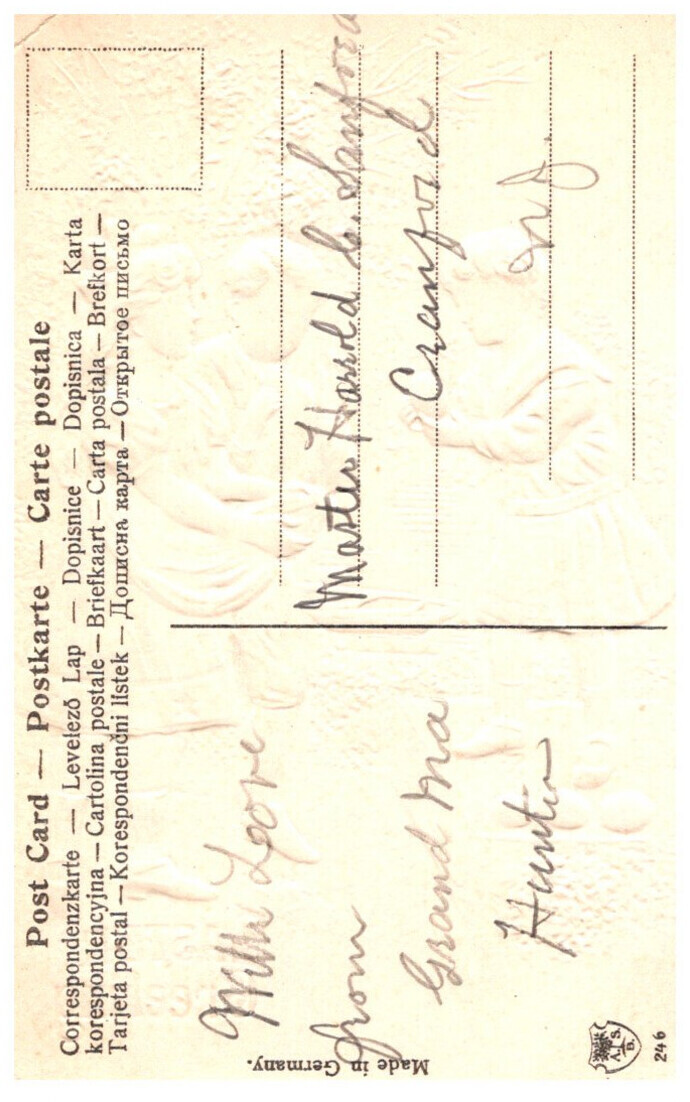 Post Card — Postkarte — Carte postale
Correspondenzkarte — Levelező Lap — Dopisnice — Dopisnica — Karta
korespondencyjna — Cartolina postale — Briefkaart — Carta postala — Brefkort —
Tarjeta postal — Korespondenční listek — Дописна карта — Открытое письмо
With Love
from
Grand Ma
Hunter
Master Harold C. Sanford
Cranford
N J.
Made in Germany.
A. S.
B.
246